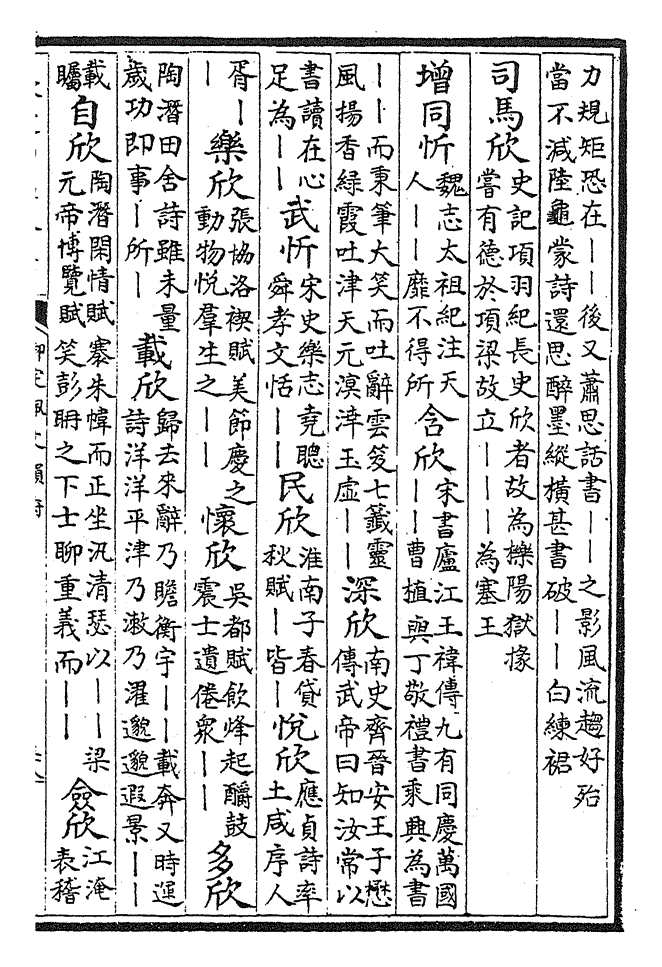 力規矩恐在——後又蕭思話書——之影風流趨好殆
當不減陸龜蒙詩還思醉墨縱橫甚書破——白練裙
司馬欣
史記項羽紀長史欣者故為櫟陽獄掾
嘗有德於項梁故立———為塞王
增同忻
魏志太祖紀注天
人——靡不得所
含欣
宋書廬江王禕傳九有同慶萬國
——曹植與丁敬禮書乘興為書
——而秉筆大笑而吐辭雲笈七籤靈
風揚香綠霞吐津天元溟涬玉虛——
深欣
南史齊晉安王子懋
傳武帝曰知汝常以
書讀在心
足為——
武忻
宋史樂志堯聰
舜孝文恬——
民欣
淮南子春貸
秋賦—皆—
悅欣
應貞詩率
土咸序人
胥—
—
樂欣
張協洛禊賦美節慶之
動物悅羣生之——
懷欣
吳都賦飲烽起釂鼓
震士遺倦衆——
多欣
陶潛田舍詩雖未量
歲功即事—所—
載欣
歸去來辭乃瞻衡宇——載奔又時運
詩洋洋平津乃漱乃濯邈邈遐景——
載
矚
自欣
陶潛閑情賦褰朱幃而正坐汎清瑟以——梁
元帝博覽賦笑彭聃之下士聊重義而——
僉欣
江淹
表稽